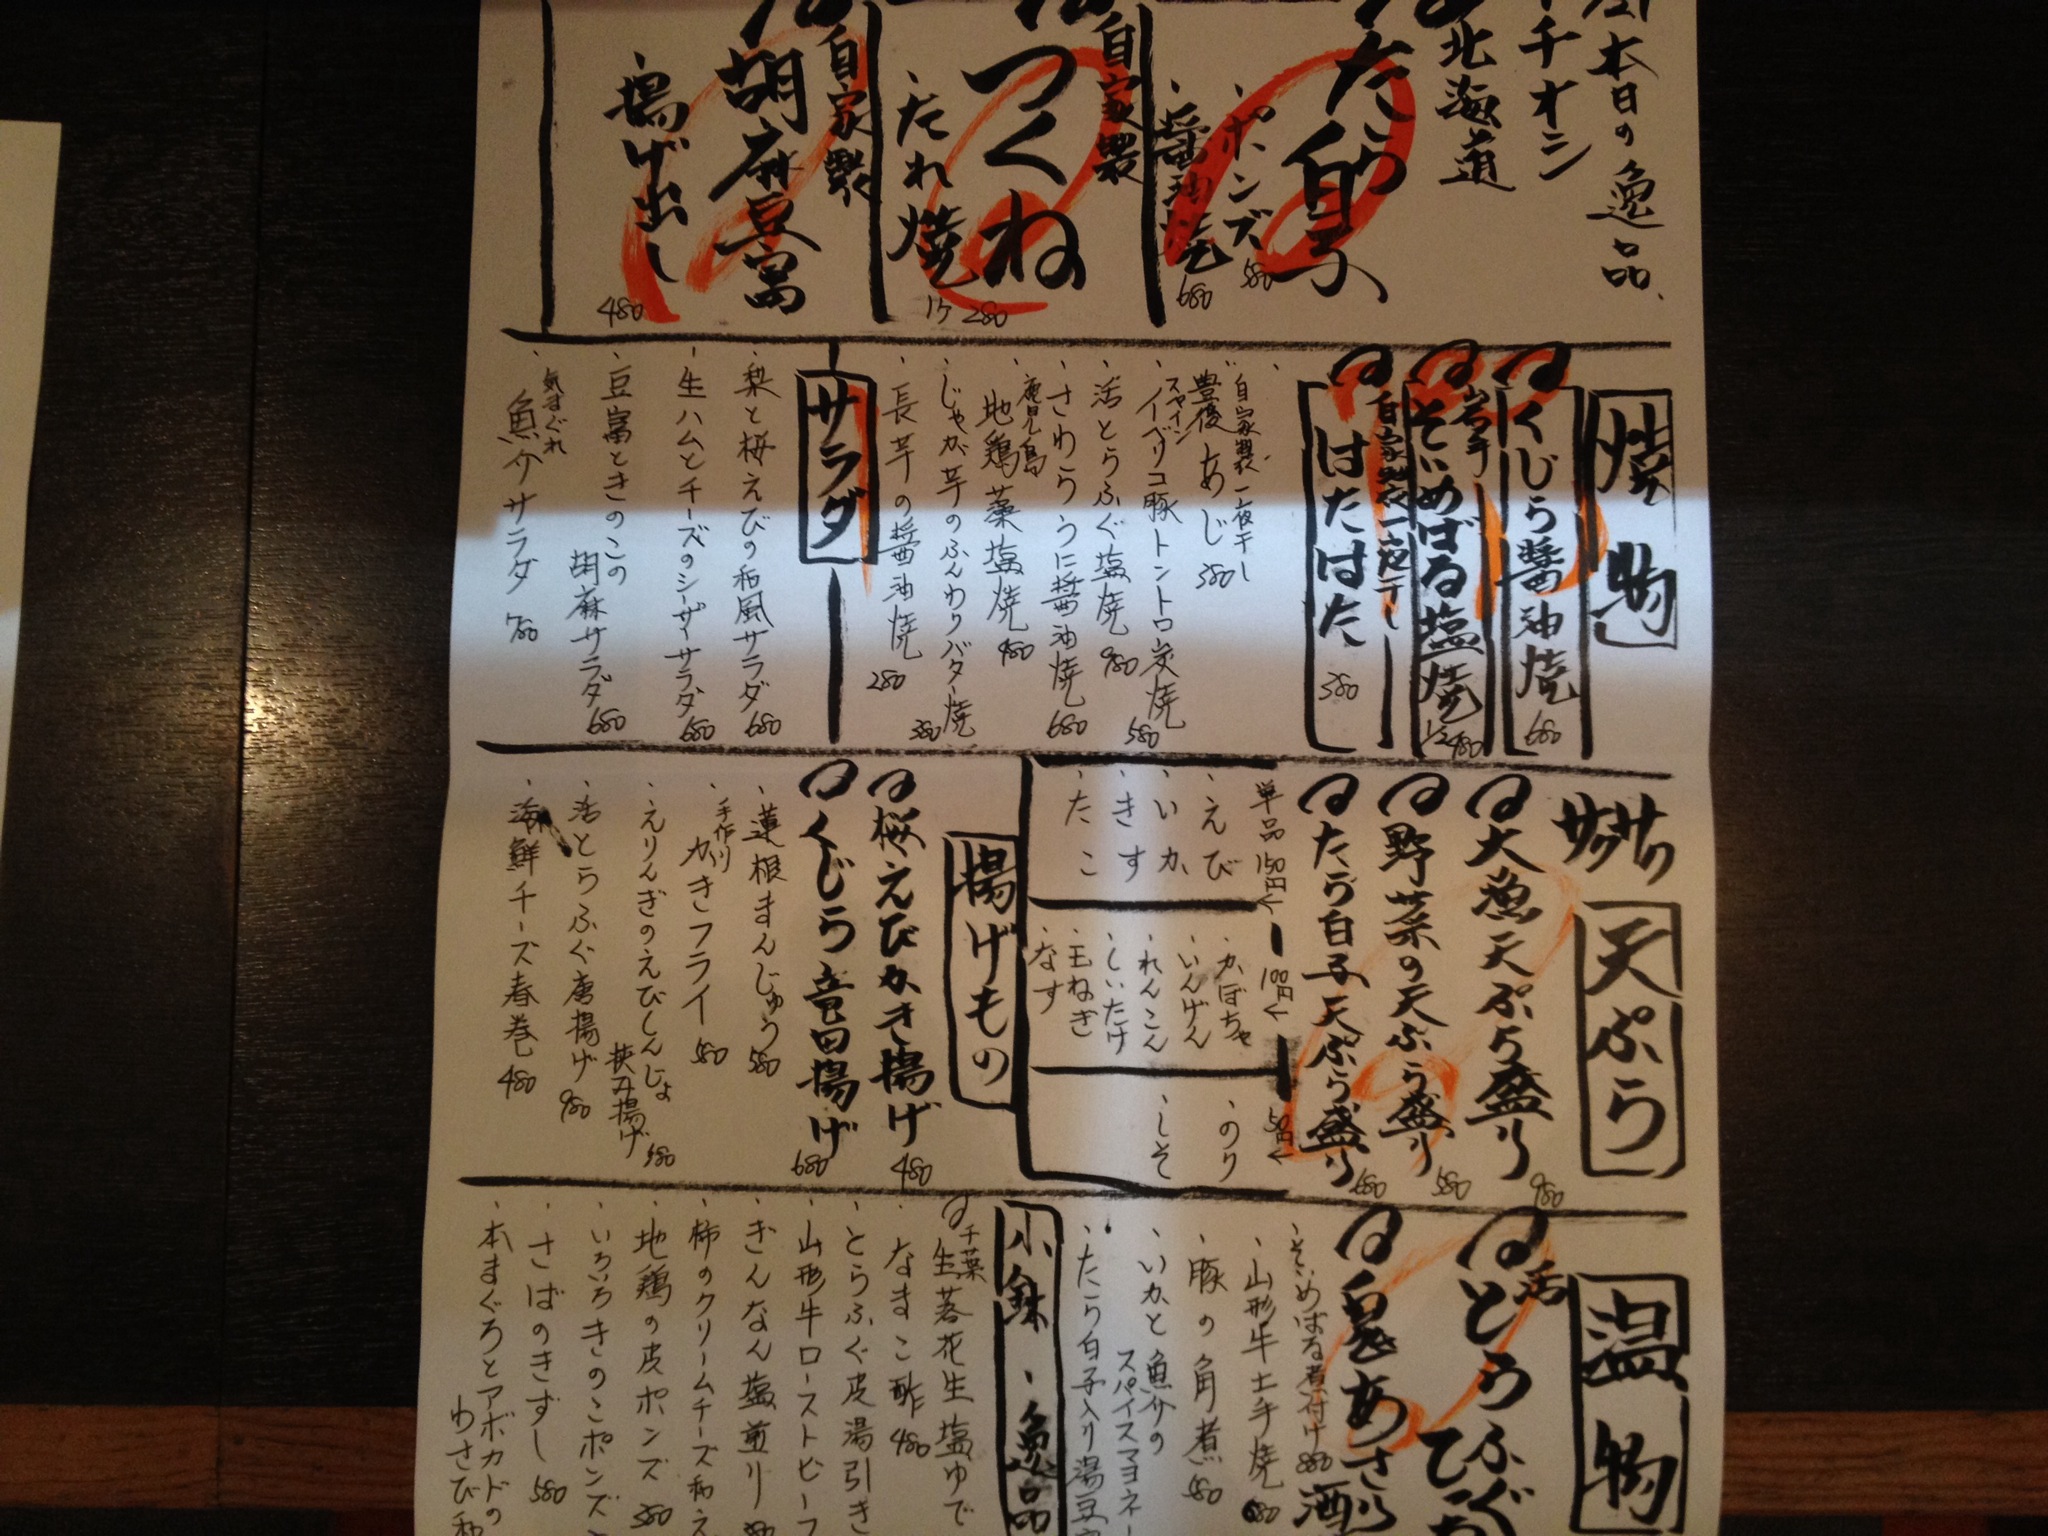 本日の逸品、
イチオシ
北海道
たら白子
・ポンズ 580
・醤油焼 680
自家製
つくね
・たれ焼 1ケ 280
自家製
胡麻豆富
・揚げ出し 480
焼物
くじら醤油焼 680
岩手
そいめばる塩焼 1/2 480
自家製一夜干し
はたはた 380
自家製一夜干し
豊後あじ 380
スペイン
・イベリコ豚トントロ炭焼 580
・活とらふぐ塩焼 980
・さわらうに醤油焼 680
鹿児島
・地鶏藻塩焼 980
・じゃが芋のふんわりバター焼 380
・長芋の醤油焼 280
サラダ
・梨と桜えびの和風サラダ 680
・生ハムとチーズのシーザーサラダ 680
・豆富ときのこの
胡麻サラダ 680
気まぐれ
・魚介サラダ 780
サクサク
天ぷら
大漁天ぷら盛り 980
野菜の天ぷら盛り 580
たら白子天ぷら盛り 680
単品 150円
・えび
・いか
・きす
・たこ
100円
・かぼちゃ
・いんげん
・れんこん
・しいたけ
・玉ねぎ
・なす
50円
・のり
・しそ
揚げもの
桜えびかき揚げ 480
くじら竜田揚げ 680
・蓮根まんじゅう 580
手作り
・かきフライ 580
・えりんぎのえびしんじょ
挟み揚げ 580
・活とらふぐ唐揚げ 980
・海鮮チーズ春巻 480
温物
活とらふぐ
あさり酒
・そいめばる煮付け 880
・山形牛土手焼 680
・豚の角煮
・いかと魚介の
スパイスマヨネー
・たら白子入り湯豆
小鉢・逸品
千葉
生落花生塩ゆで
・なまこ酢 480
・とらふぐ皮湯引き
・山形牛ローストビーフ
・ぎんなん塩煎り
・柿のクリームチーズ和え
・地鶏の皮ポンズ 380
・いろいろきのこポンズ
・さばのきずし 580
・本まぐろとアボカドの
わさび和